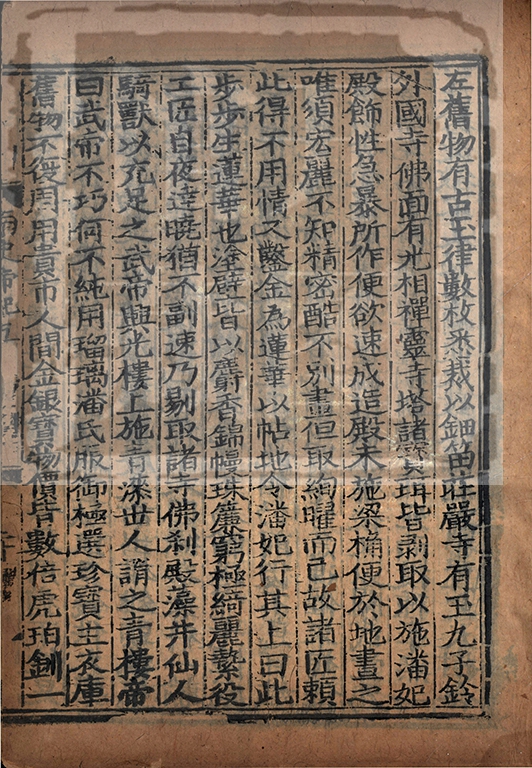 左舊物有古玉律數枚悉裁以鈿笛莊嚴寺有玉九子鈴
外國寺佛面有光相禪靈寺塔諸寶珥皆剥取以施潘妃
殿飾性急暴所作便欲速成造殿未施梁桷便於地畫之
唯須宏麗不知精密酷不別畫但取絢曜而已故諸匠賴
此得不用情又鑿金為蓮華以帖地令潘妃行其上曰此
步步生蓮華也塗壁皆以麝香錦幔珠簾窮極綺麗縶役
工匠自夜達曉猶不副速乃剔取諸寺佛刹殿藻井仙人
騎獸以充足之武帝興光樓上施青漆世人謂之青樓帝
曰武帝不巧何不純用瑠璃潘氏服御極選珍寶主衣庫
舊物不復周用貴市人間金銀寶物價皆數倍虎珀釧一
南史帝紀五